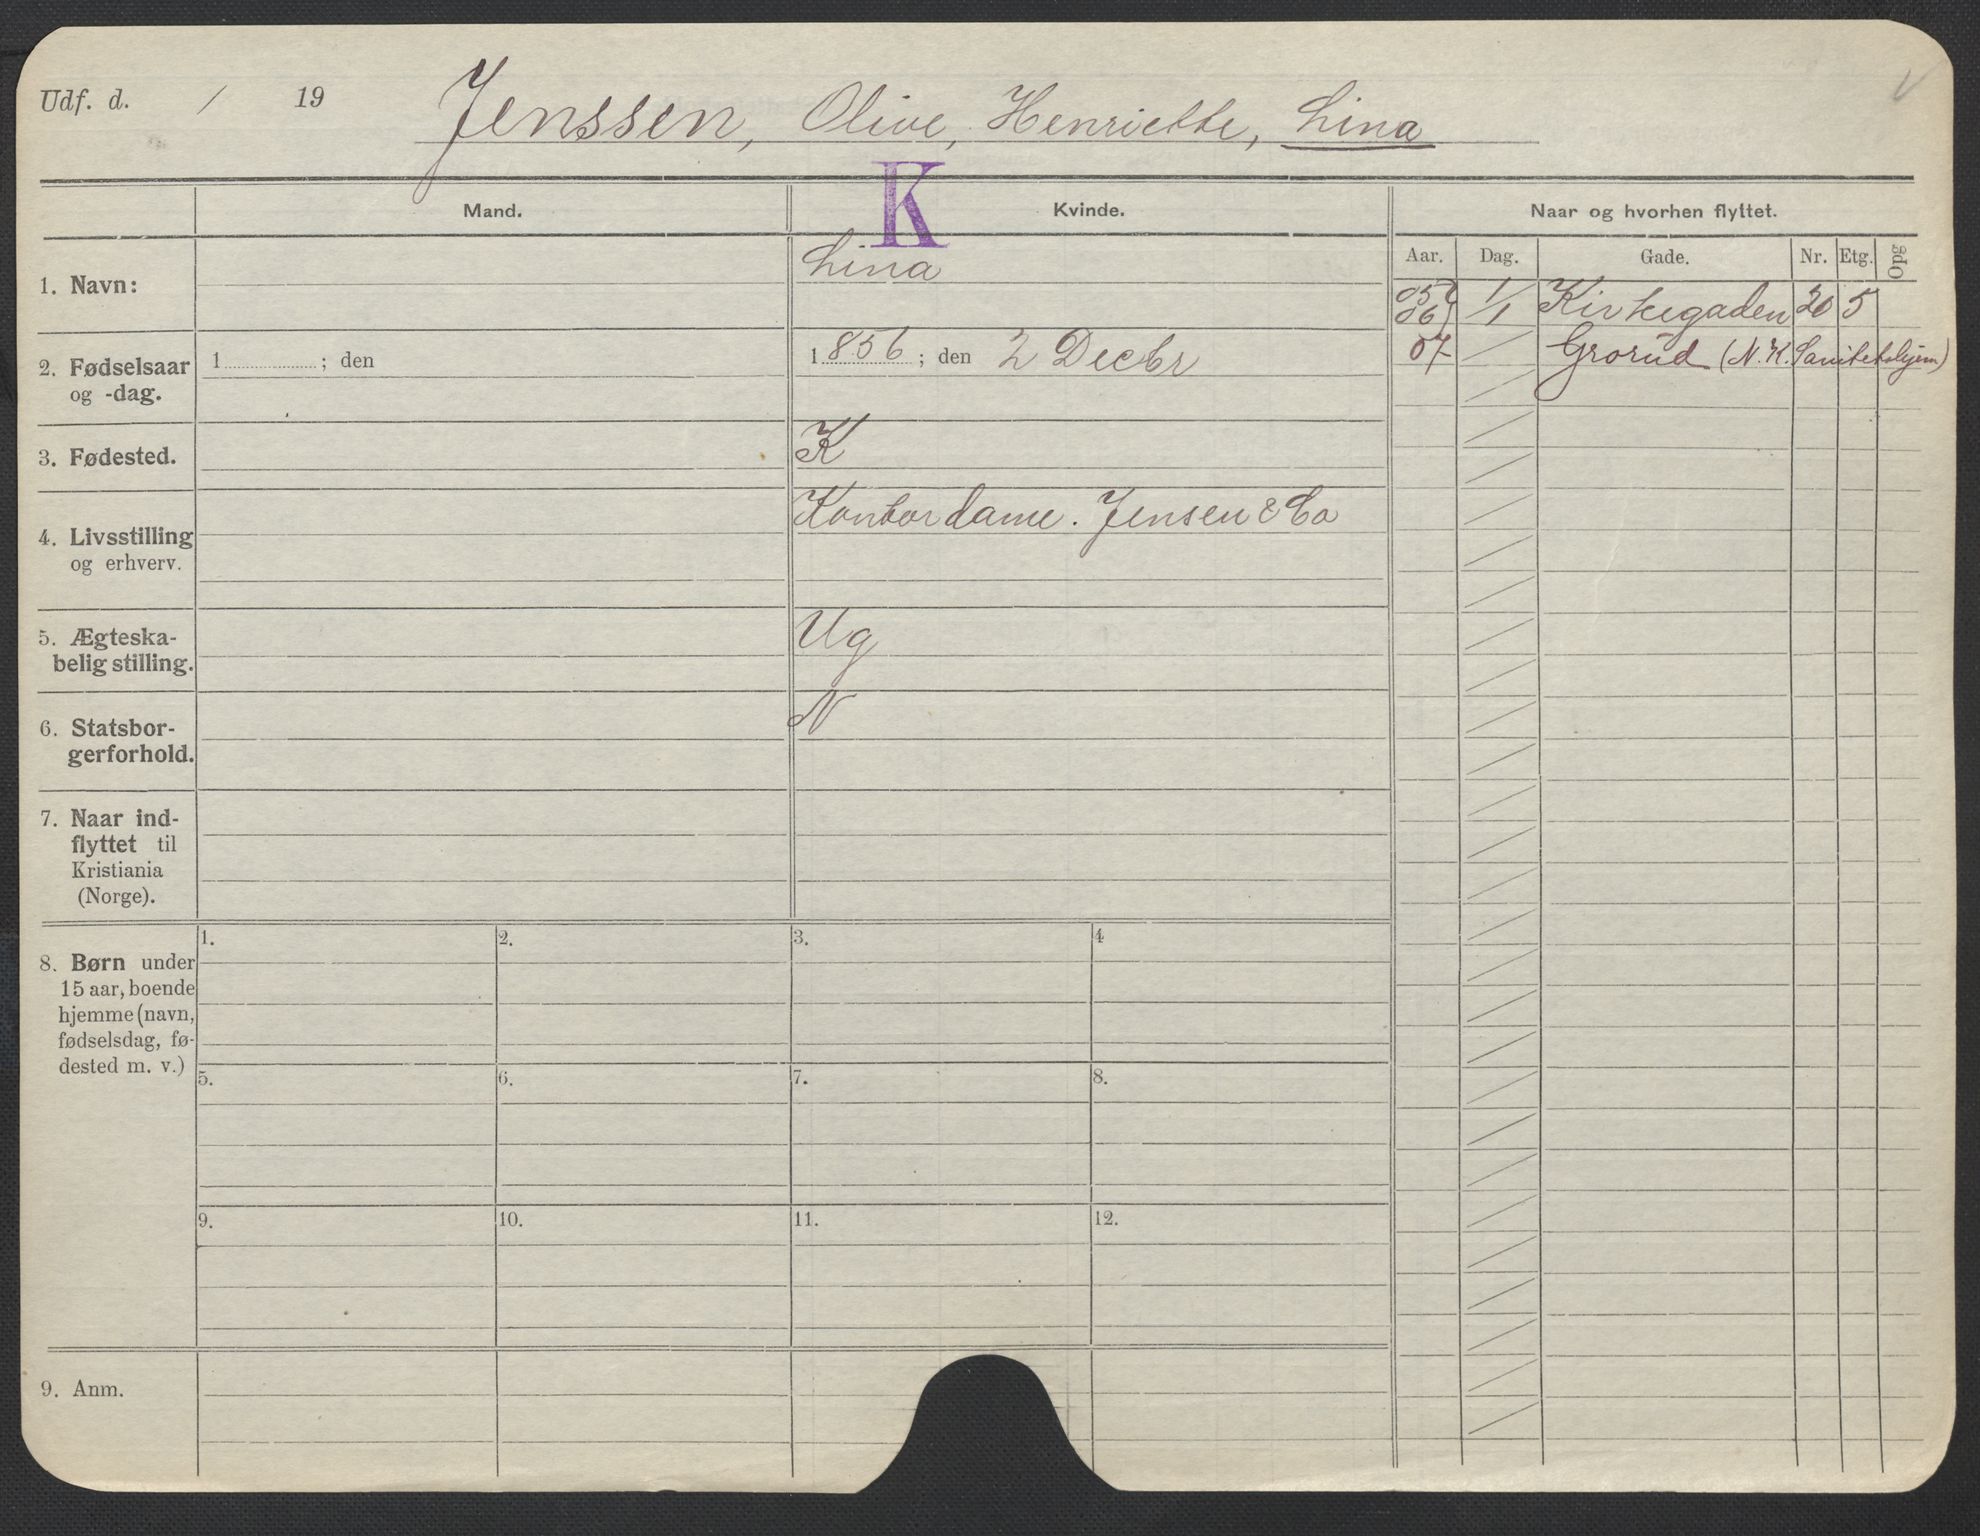 Udf. d. / 19 Jenssen, Olive, Henriette, Lina
K
Mand. Kvinde. Naar og hvorhen flyttet.
Aar. Dag. Gade. Nr. Etg. Opg
1. Navn: Lina
05
06 1/1 Kirkegaden 20 5
07 Grorud (N. K. Sanitetshjem)
2. Fødselsaar
og -dag. 1 ; den 1856 ; den 2 Decbr
3. Fødested. K
4. Livsstilling
og erhverv. Kontordame. Jensen & Co
5. Ægteska-
belig stilling. Ug
6. Statsbor-
gerforhold. N
7. Naar ind-
flyttet til
Kristiania
(Norge).
8. Børn under
15 aar, boende
hjemme (navn,
fødselsdag, fø-
dested m. v.)
1. 2. 3. 4
5. 6. 7. 8.
9. 10. 11. 12.
9. Anm.